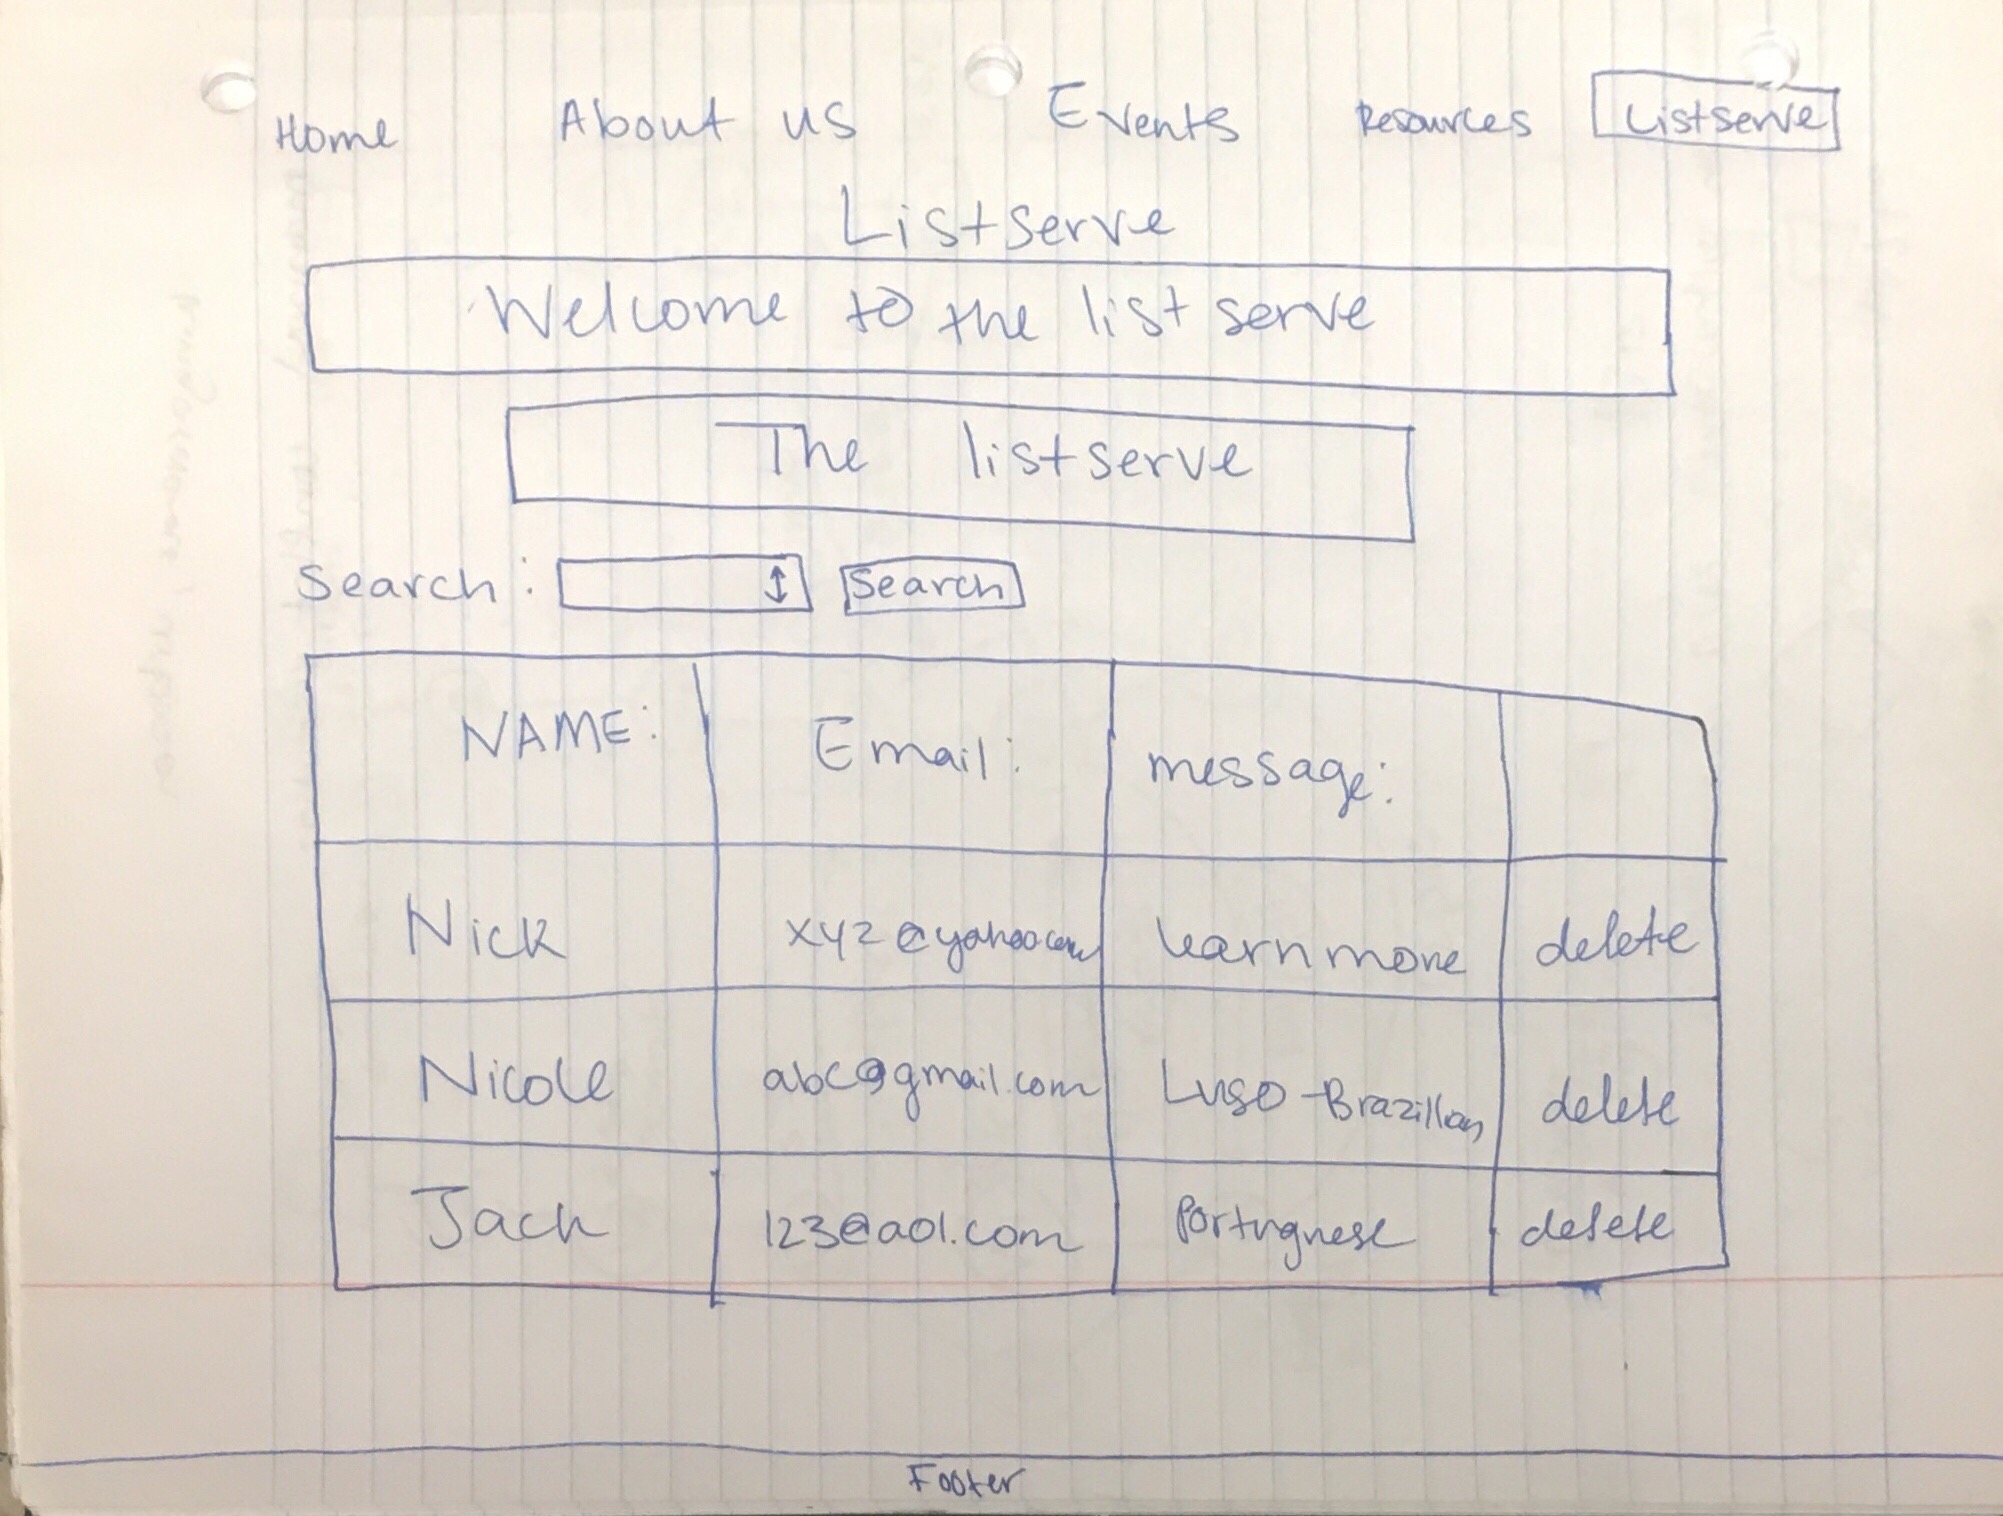 Home About us Events Resources Listserve
Listserve
Welcome to the listserve
The listserve
Search: Search
NAME: Email: message:
Nick xyz@yahoo.com learn more delete
Nicole abc@gmail.com Luso-Brazilian delete
Jack 123@aol.com Portuguese delete
Footer